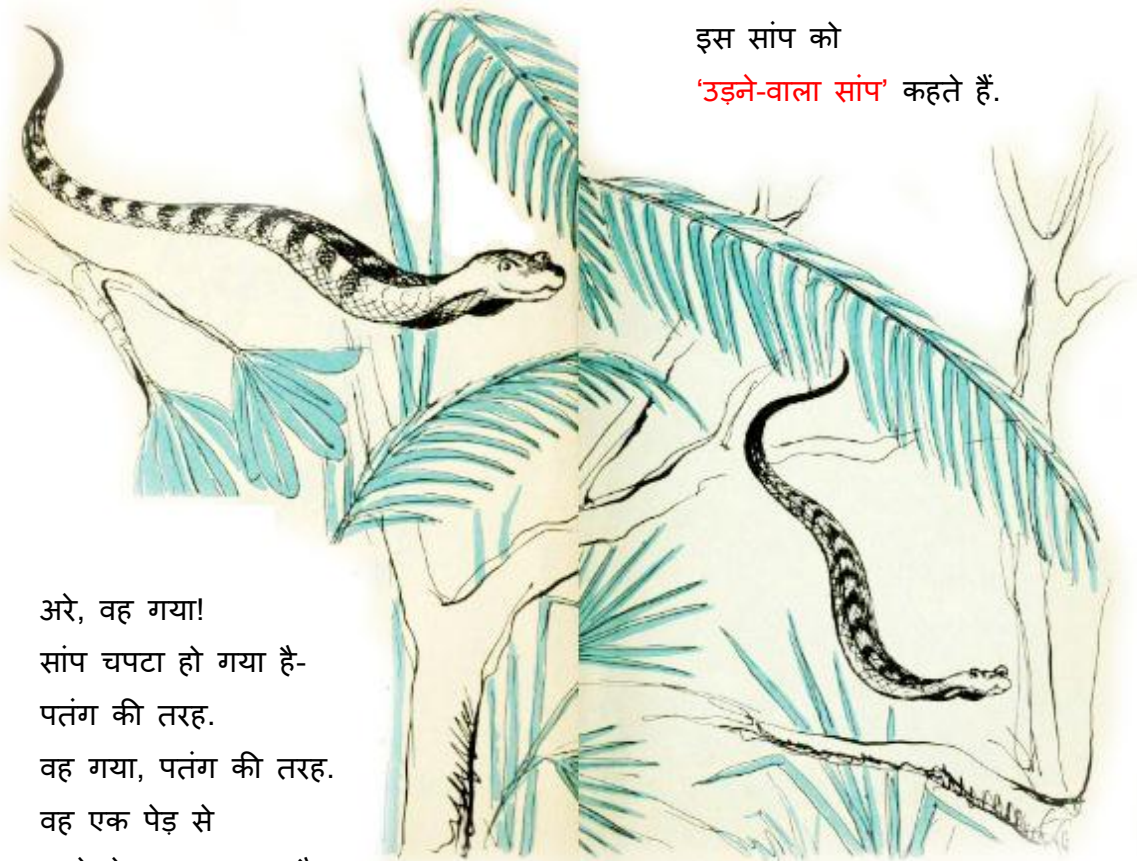 इस सांप को
‘उड़ने-वाला सांप’ कहते हैं.
अरे, वह गया!
सांप चपटा हो गया है-
पतंग की तरह.
वह गया, पतंग की तरह.
वह एक पेड़ से